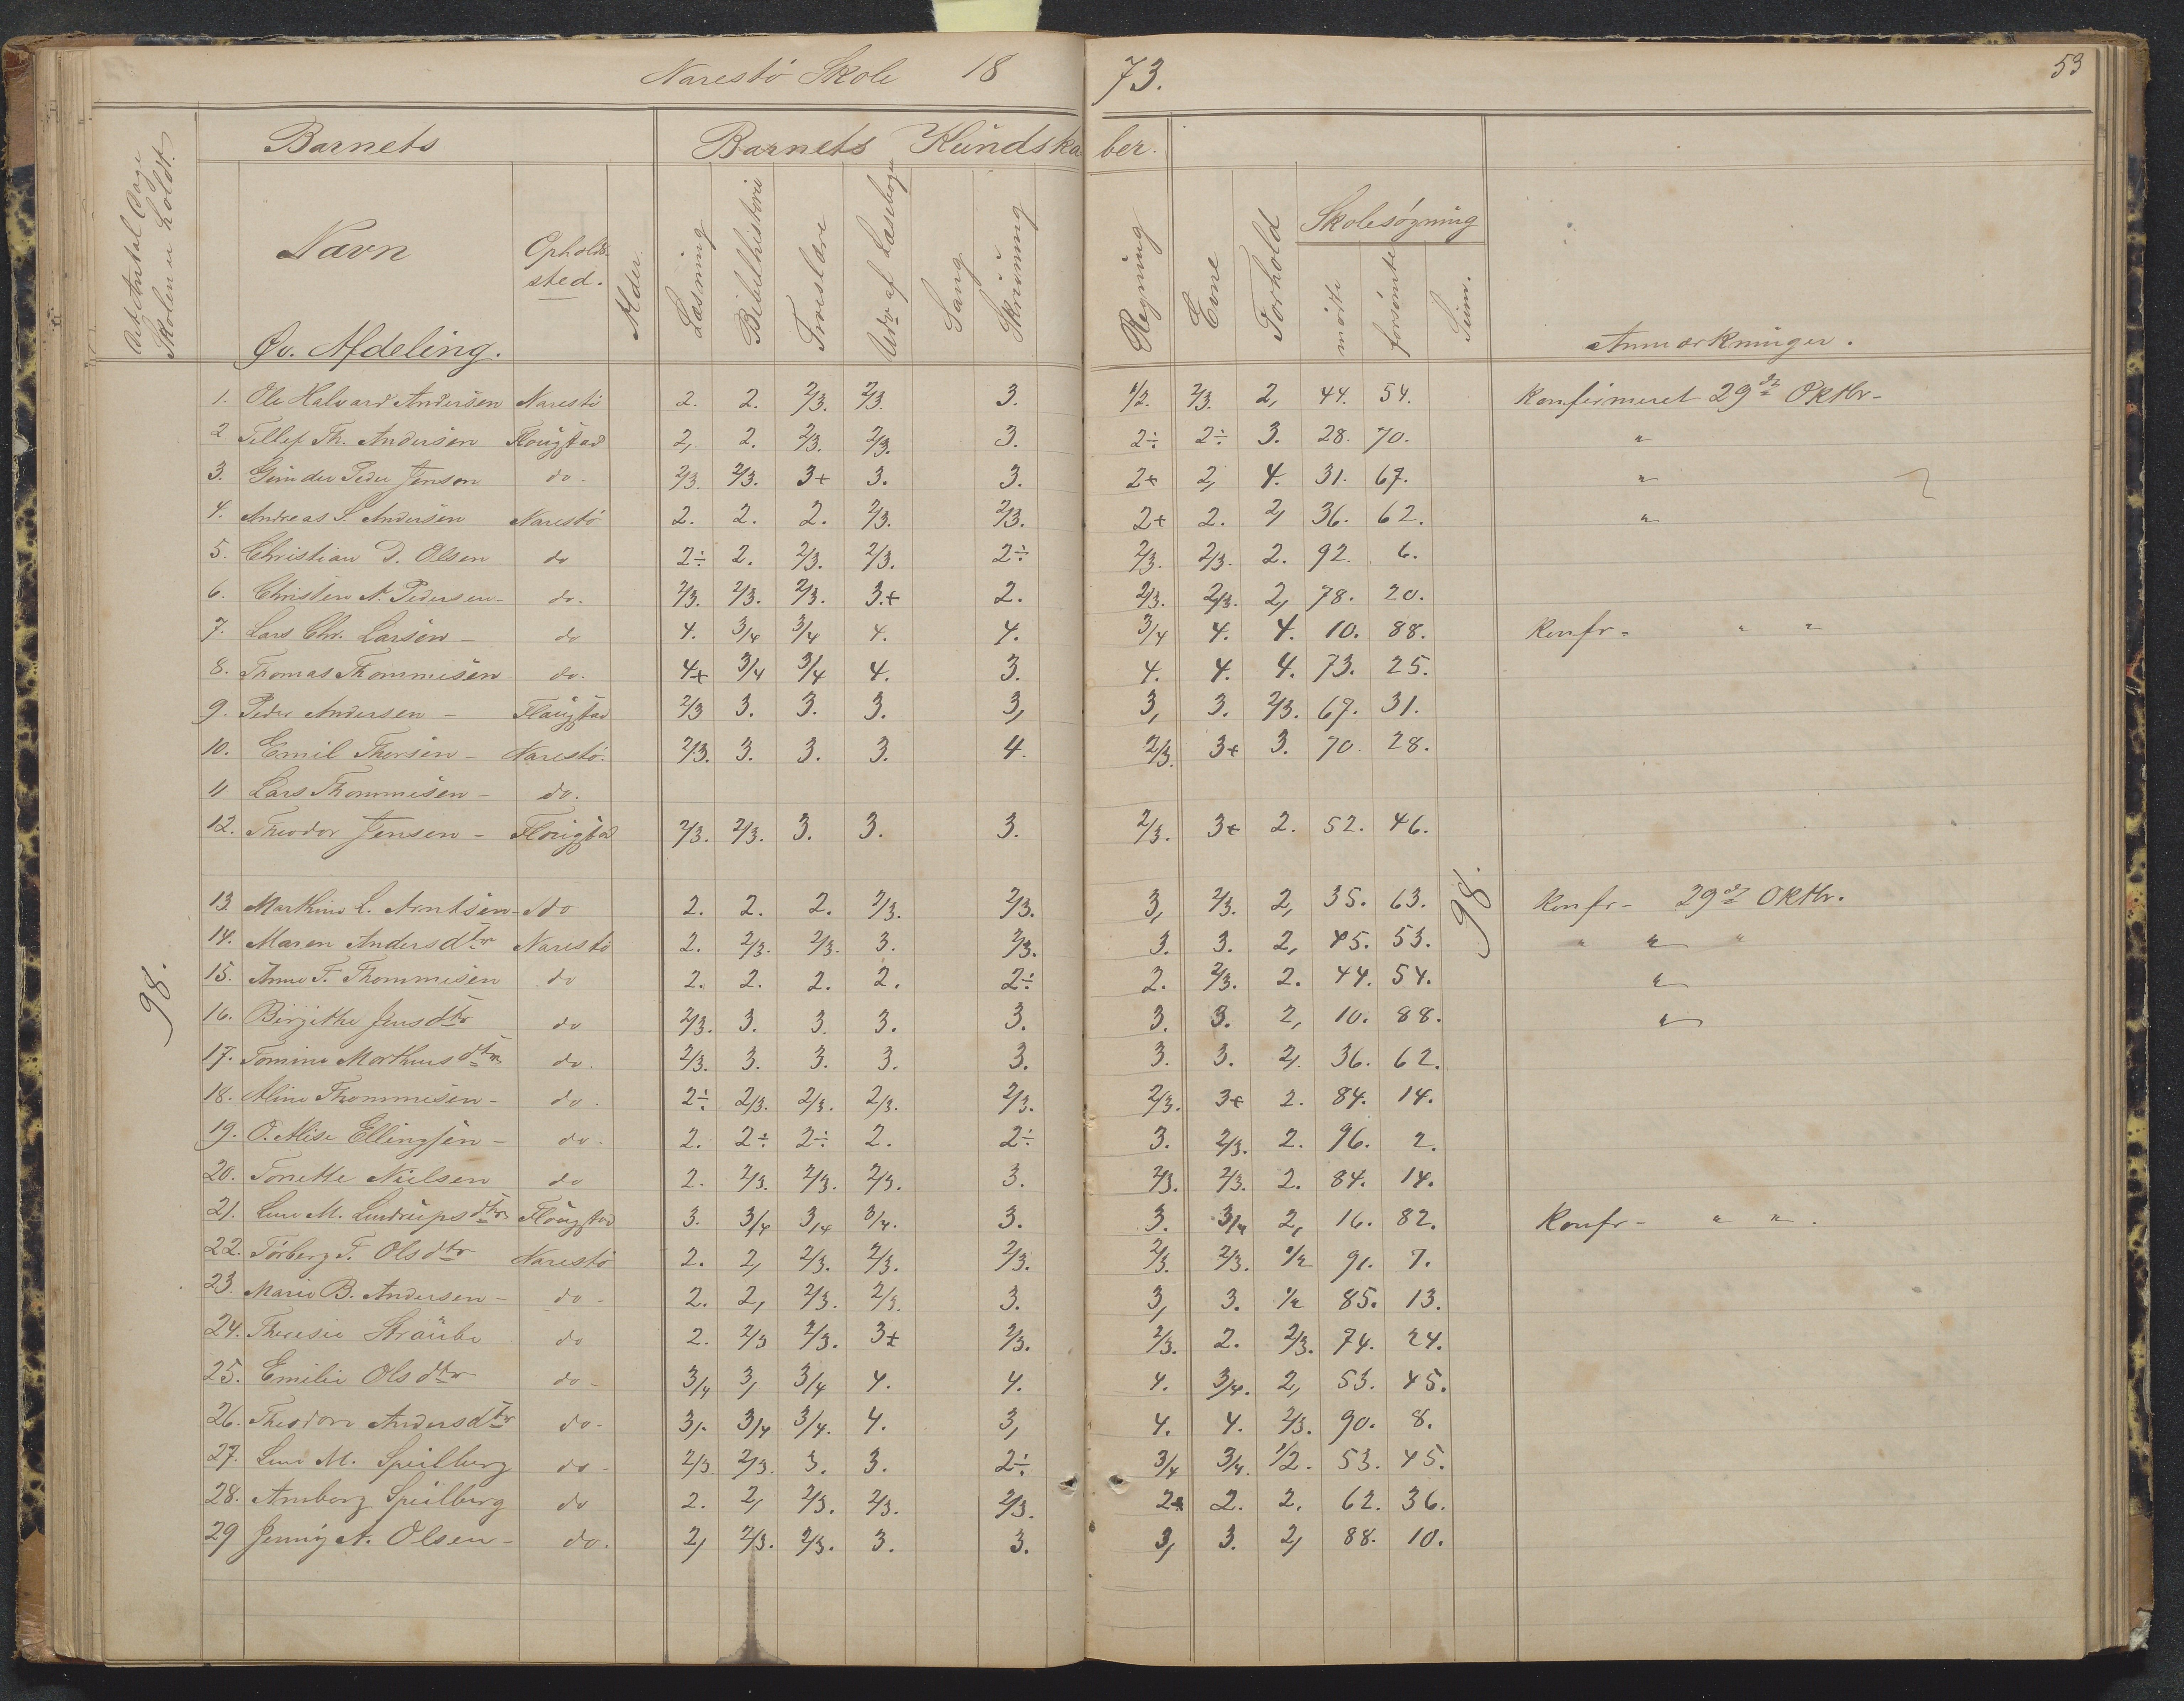 Narestö Skole 18 73. 53
Det Antal Dage Skolen er holdt.
Barnets Barnets Kundska ber.
Navn Opholds- sted. Alder. Læsning Bibelhistorie Troeslære Udv. af Læsebogen Sang Skrivning Regning Evne Forhold Skolesøgning mødte forsømte Sum. Anmærkninger.
Øv. Afdeling.
1. Ole Halvard Andersen Narestö 2. 2. 2/3. 2/3. 3. 1/2. 2/3. 2, 44. 54. Konfirmeret 29de Oktbr-
2. Tellef Th. Andersen Flougstad 2, 2. 2/3. 2/3. 3. 2÷ 2÷ 3. 28. 70. "
3. Gunder Peder Jenson do. 2/3 2/3. 3+ 3. 3. 2+ 2, 4. 31. 67. "
4. Andreas S. Andersen Narestö 2. 2. 2. 2/3. 2/3. 2+ 2. 2, 36. 62. "
5. Christian D. Olsen do 2÷ 2. 2/3. 2/3. 2÷ 2/3. 2/3. 2. 92. 6.
6. Christen N. Pedersen- do. 2/3. 2/3. 2/3. 3.+ 2. 2/3. 2/3. 2, 78. 20.
7. Lars Chr. Larsen - do 4. 3/4 3/4 4. 4. 3/4 4. 4. 10. 88. Konfr- " "
8. Thomas Thommesen do. 4+ 3/4 3/4 4. 3. 4. 4. 4. 73. 25.
9. Peder Andersen - Flaugstad 2/3 3. 3. 3. 3, 3, 3. 2/3. 67. 31.
10. Emil Thorsen - Narestö. 2/3. 3. 3. 3. 4. 2/3. 3+ 3. 70. 28.
11 Lars Thommesen - do.
12. Theodor Jensen - Flougstad 2/3. 2/3. 3. 3. 3. 2/3. 3+ 2. 52. 46.
98. 98.
13. Marthine L. Arntsen - do 2. 2. 2. 2/3. 2/3. 3, 2/3. 2, 35. 63. Konfr- 29de Oktbr.
14. Maren Andersdtr Narestö 2. 2/3. 2/3. 3. 2/3. 3. 3. 2, 45. 53. " " "
15. Anne F. Thommesen do 2. 2. 2. 2. 2÷ 2. 2/3. 2. 44. 54. "
16. Birgithe Jensdtr do 2/3. 3. 3. 3. 3. 3. 3. 2, 10. 88. "
17. Tomine Morthensdtr do. 2/3. 3. 3. 3. 3. 3. 3. 2, 36. 62.
18. Aline Thommesen - do. 2÷ 2/3. 2/3. 2/3. 2/3. 2/3. 3+ 2. 84. 14.
19. O. Alise Ellingsen - do. 2. 2÷ 2÷ 2. 2÷ 3. 2/3. 2. 96. 2.
20. Tonette Nielsen do 2. 2/3. 2/3. 2/3. 3. 2/3. 2/3. 2. 84. 14.
21. Lene M. Lindrupsdtr Flougstad 3. 3/4 3/4 3/4. 3. 3. 3/4 2, 16. 82. Konfr- " " .
22. Torberg F. Olsdtr Narestö 2. 2, 2/3. 2/3. 2/3. 2/3. 2/3. 1/2 91. 7.
23. Marie B. Andersen - do - 2. 2, 2/3. 2/3. 3. 3, 3. 1/2 85. 13.
24. Theresie Straube do 2. 2/3 2/3. 3+ 2/3. 2/3. 2. 2/3. 74. 24.
25. Emilie Olsdtr do - 3/4 3, 3/4 4. 4. 4. 3/4. 2, 53. 45.
26. Theodore Andersdtr do- 3/- 3/4 3/4. 4. 3, 4. 4. 2/3. 90. 8.
27. Lene M. Speilberg do - 2/3 2/3. 3. 3. 2÷ 3/4 3/4. 1/2. 53. 45.
28. Anborg Speilberg do 2. 2, 2/3. 2/3. 2/3. 2+ 2. 2. 62. 36.
29 Jenny A. Olsen - do. 2, 2/3. 2/3. 3. 3. 3, 3. 2, 88. 10.